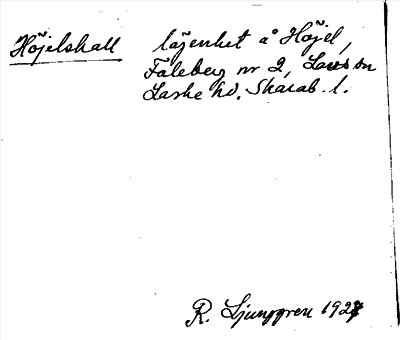 Höjelshall lägenhet å Höjel,
Faleberg nr 2, sn
Laske hd. Skarab. l.
R. Ljunggren 1927